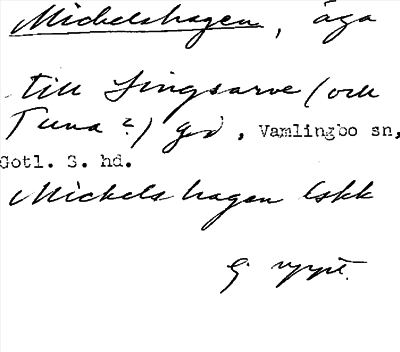 Mickelshagen, äga
till Lingsarve (och
Tuna?) gd, Vamlingbo sn,
Gotl. S. hd.
Mickelshagen lskk
Ej uppt.